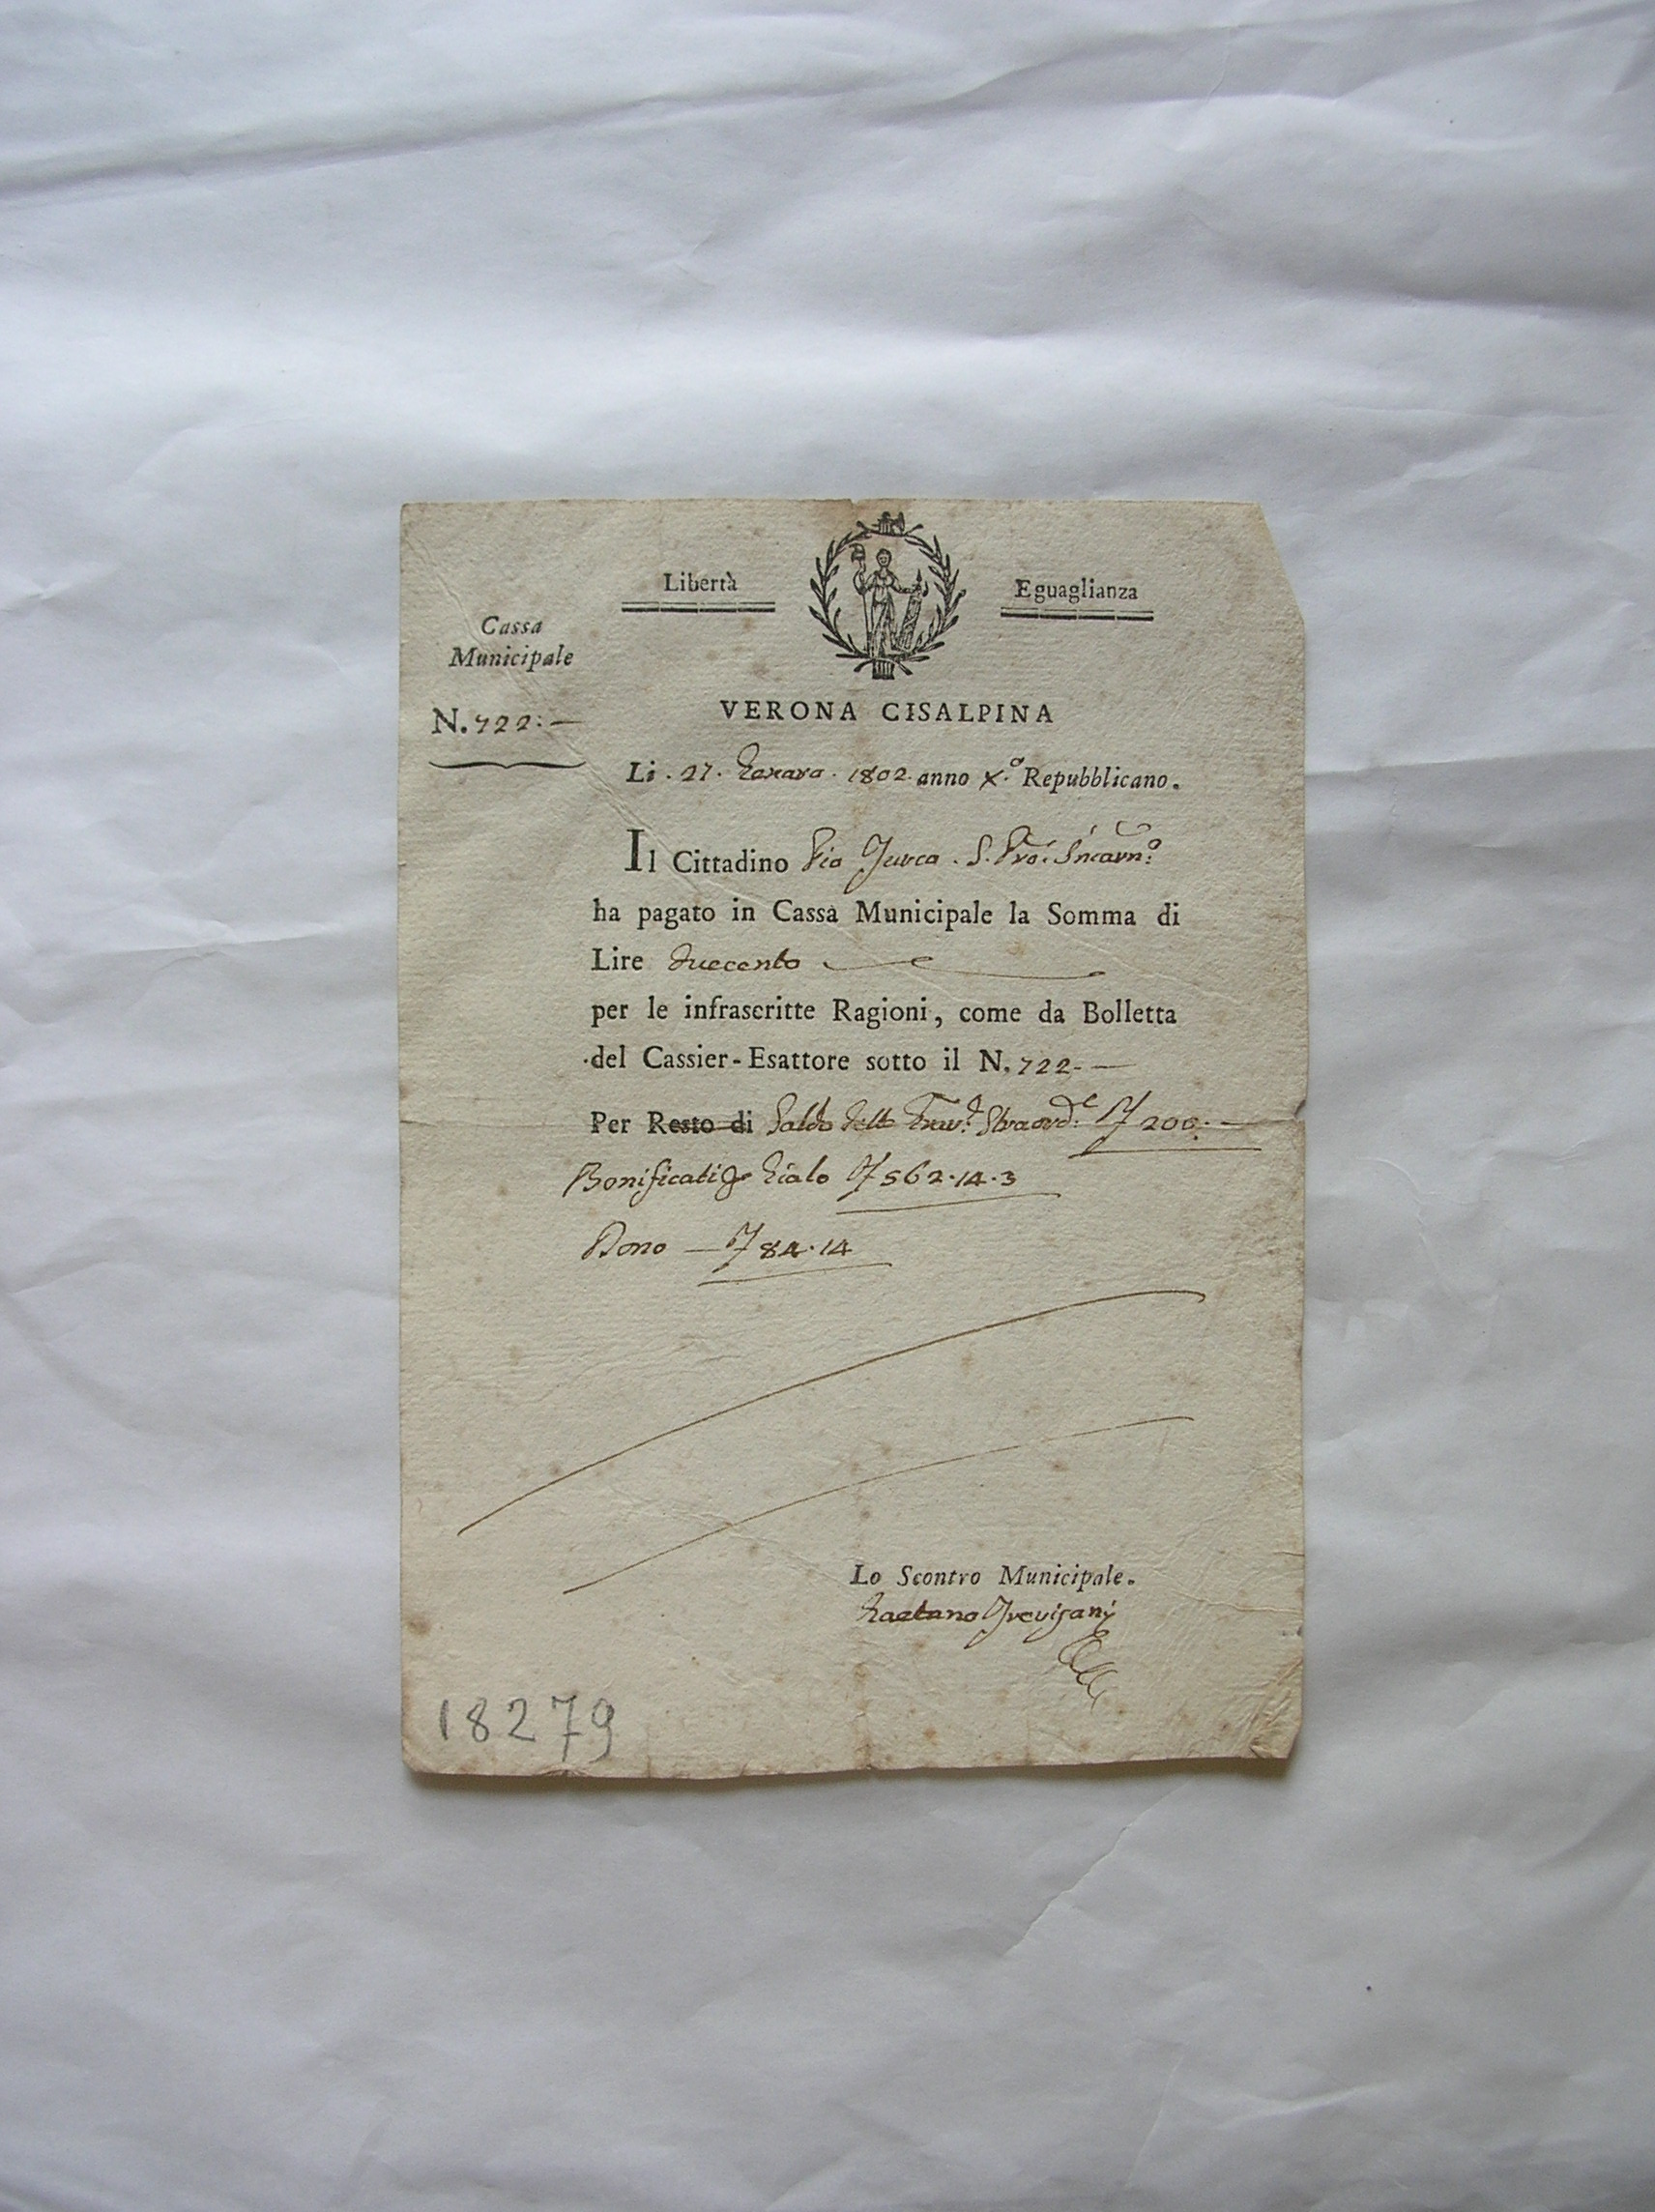 Libertà
Eguaglianza
Cassa
Municipale
N. 722:—
VERONA CISALPINA
Li . 27. 1802. anno X.º Repubblicano.
Il Cittadino Pio
ha pagato in Cassa Municipale la Somma di
Lire duecento
per le infrascritte Ragioni, come da Bolletta
del Cassier-Esattore sotto il N. 722.—
Per Resto di Saldo 200:—
Bonificati 562.14.3
Bono — 84.14
Lo Scontro Municipale.
Gaetano Trevisani
18279